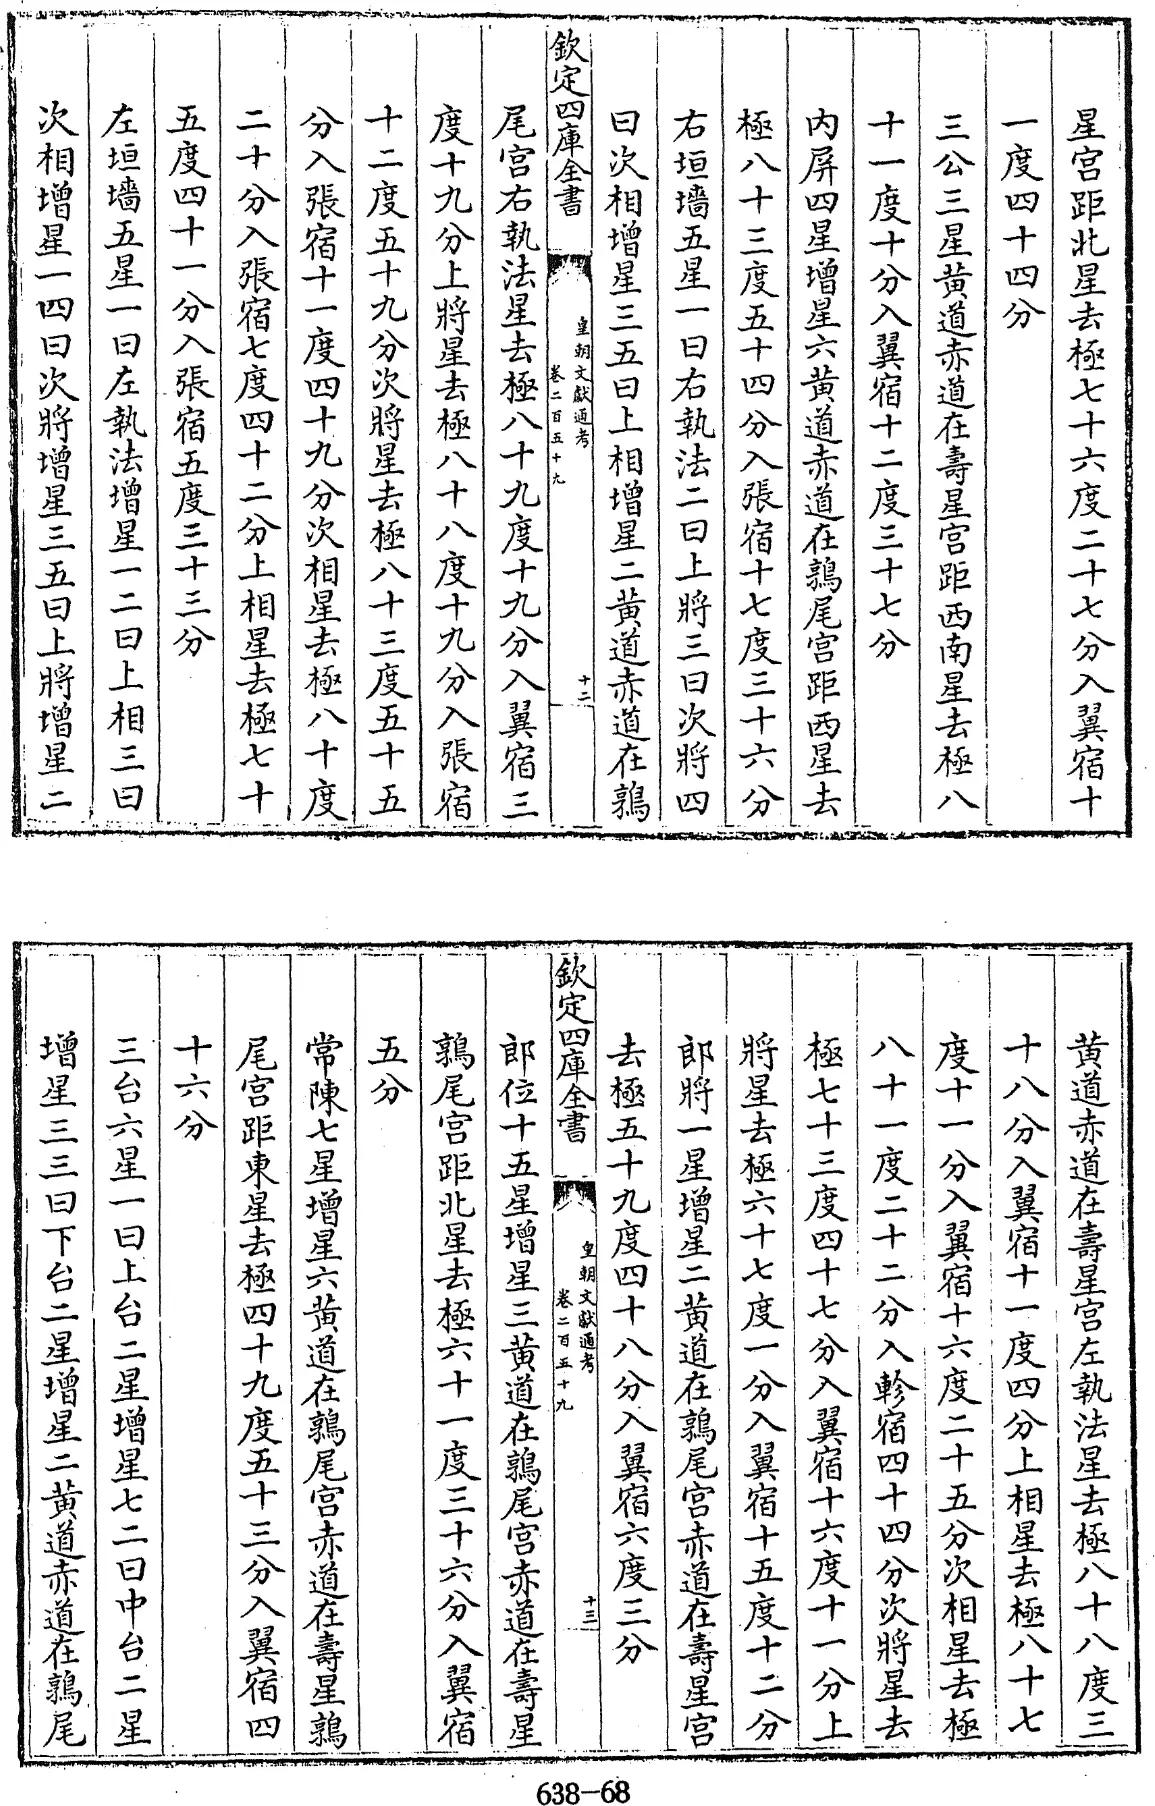 星宫距北星去極七十六度二十七分入翼宿十
一度四十四分
三公三星黄道赤道在壽星宫距西南星去極八
十一度十分入翼宿十二度三十七分
内屏四星增星六黄道赤道在鶉尾宫距西星去
極八十三度五十四分入張宿十七度三十六分
右垣墻五星一曰右執法二曰上將三曰次將四
曰次相增星三五曰上相增星二黄道赤道在鶉
欽定四庫全書
皇朝文獻通考
卷二百五十九
十二
尾宫右執法星去極八十九度十九分入翼宿三
度十九分上將星去極八十八度十九分入張宿
十二度五十九分次將星去極八十三度五十五
分入張宿十一度四十九分次相星去極八十度
二十分入張宿七度四十二分上相星去極七十
五度四十一分入張宿五度三十三分
左垣墻五星一曰左執法增星一二曰上相三曰
次相增星一四曰次將增星三五曰上將增星二
黄道赤道在壽星宫左執法星去極八十八度三
十八分入翼宿十一度四分上相星去極八十七
度十一分入翼宿十六度二十五分次相星去極
八十一度二十二分入軫宿四十四分次將星去
極七十三度四十七分入翼宿十六度十一分上
將星去極六十七度一分入翼宿十五度十二分
郎將一星增星二黄道在鶉尾宫赤道在壽星宫
去極五十九度四十八分入翼宿六度三分
欽定四庫全書
皇朝文獻通考
卷二百五十九
十三
郎位十五星增星三黄道在鶉尾宫赤道在壽星
鶉尾宫距北星去極六十一度三十六分入翼宿
五分
常陳七星增星六黄道在鶉尾宫赤道在壽星鶉
尾宫距東星去極四十九度五十三分入翼宿四
十六分
三台六星一曰上台二星增星七二曰中台二星
增星三三曰下台二星增星二黄道赤道在鶉尾
638-68